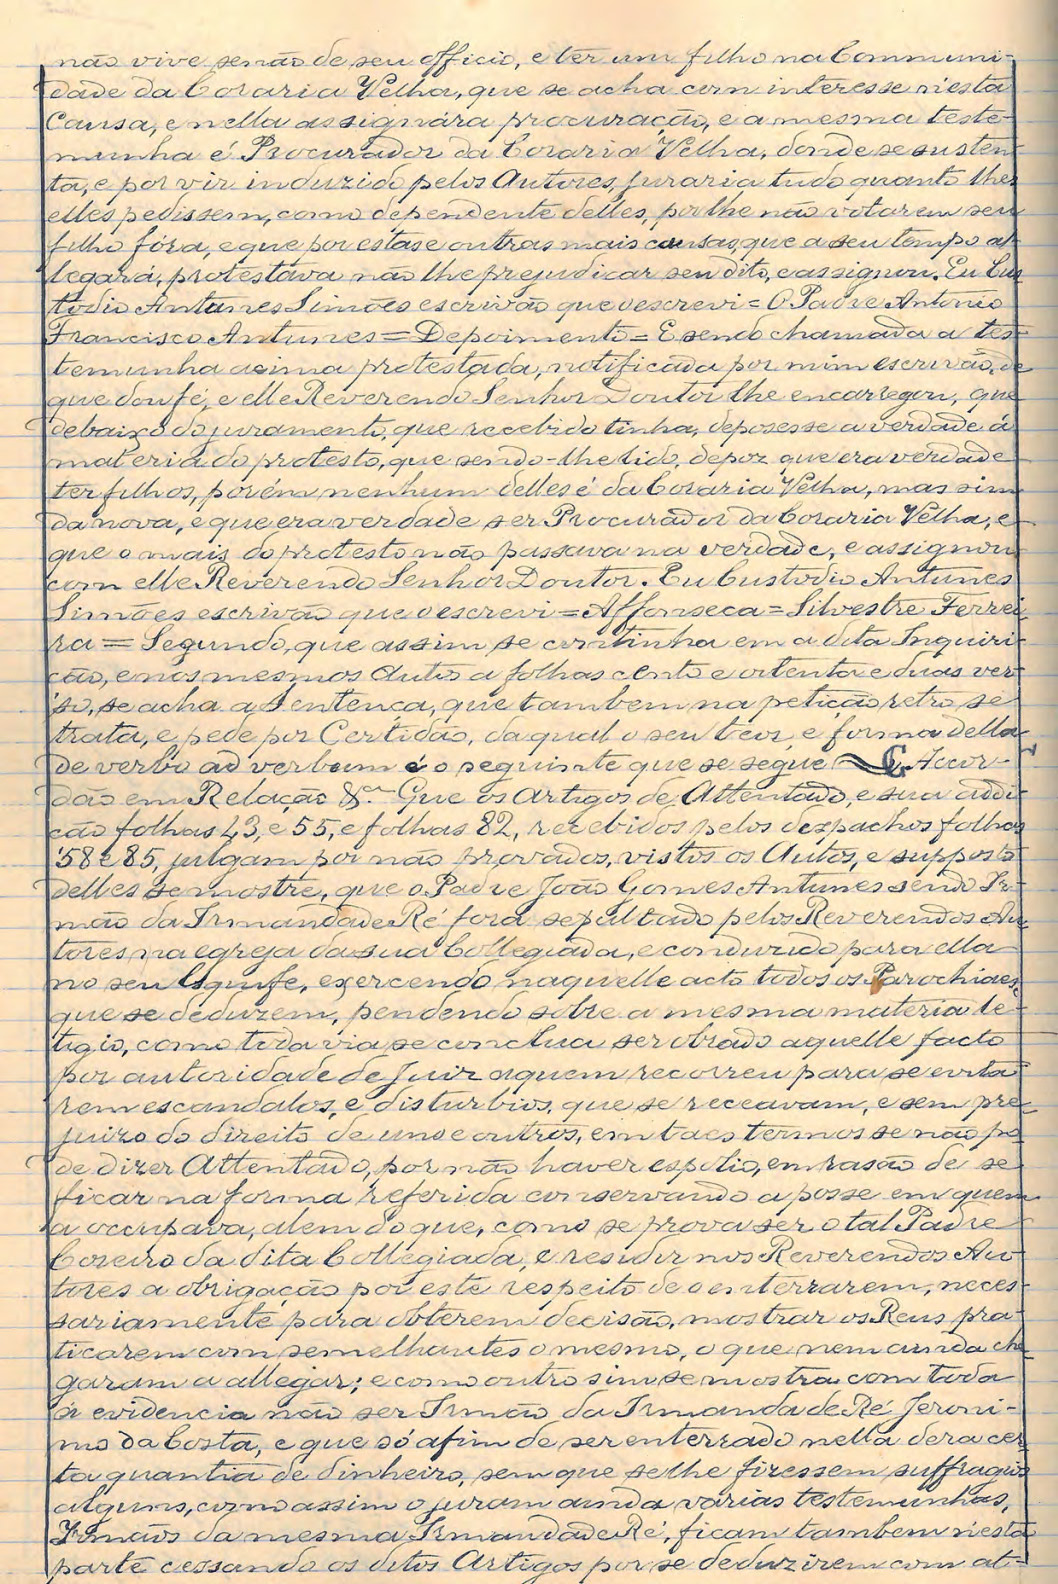 não vive senão de seu officio, e ter um filho na Communi-
dade da Coraria Velha, que se acha com interesse n'esta
Causa, e nella assignára procuração, e a mesma teste-
munha é Procurador da Coraria Velha, donde se susten-
ta, e por vir induzido pelos Autores, juraria tudo quanto lhes
elles pedissem, como dependente delles, por lhe não votarem seu
filho fóra, e que por estas e outras mais causas, que a seu tempo al-
legará, protestava não lhe prejudicar seu dito, e assignou. Eu Cus-
todio Antunes Simões escrivão que o escrevi = O Padre Antonio
Francisco Antunes = Depoimento = E sendo chamada a tes-
temunha acima protestada, notificada por mim escrivão, de
que dou fé, e elle Reverendo Senhor Doutor lhe encarregou, que
debaixo do juramento, que recebido tinha, depozesse a verdade á
materia do protesto, que sendo-lhe lido, depoz que era verdade
ter filhos, porém nenhum delles é da Coraria Velha, mas sim
da nova, e que era verdade ser Procurador da Coraria Velha, e
que o mais do protesto não passava na verdade, e assignou
com elle Reverendo Senhor Doutor. Eu Custodio Antunes
Simões escrivão que o escrevi = Affonseca = Silvestre Ferrei-
ra = Segundo, que assim se continha em a dita Inquiri-
ção, e nos mesmos Autos a folhas cento e oitenta e duas ver-
so, se acha a Sentença, que tambem na petição retro se
trata, e pede por Certidão, da qual o seu teor, e forma della
de verbo ad verbum é o seguinte que se segue Accor-
dão em Relação &.ª Que os Artigos de Attentado, e sua addi-
ção folhas 43, e 55, e folhas 82, recebidos pelos despachos folhas
58 e 85, julgam por não provados, vistos os Autos, e supposto
delles se mostre, que o Padre João Gomes Antunes sendo Ir-
mão da Irmandade Ré fora sepultado pelos Reverendos Au-
tores na egreja da sua Collegiada, e conduzido para ella
no seu Esquife, exercendo naquelle acto todos os Parochiaes,
que se deduzem, pendendo sobre a mesma materia le-
tigio, como toda via se conclua ser obrado aquelle facto
por autoridade de Juiz a quem recorreu para se evita-
rem escandalos, e disturbios, que se receavam, e sem pre-
juizo do direito de uns e outros, em taes termos se não po-
de dizer Attentado, por não haver espolio, em rasão de se
ficar na forma referida conservando a posse em quem
a occupava, alem do que, como se prova ser o tal Padre
Coreiro da dita Collegiada, e residir nos Reverendos Au-
tores a obrigação por este respeito de o enterrarem, neces-
sariamente para obterem decisão, mostrar os Reus pra-
ticarem com semelhantes o mesmo, o que nem ainda che-
garam a allegar; e como outro sim se mostra com toda
a evidencia não ser Irmão da Irmandade Ré Jeroni-
mo da Costa, e que só afim de ser enterrado nella dera cer-
ta quantia de dinheiro, sem que se lhe fizessem suffragios
alguns, como assim o juram ainda varias testemunhas,
Irmãos da mesma Irmandade Ré, ficam tambem n'esta
parte cessando os ditos Artigos por se deduzirem com at-